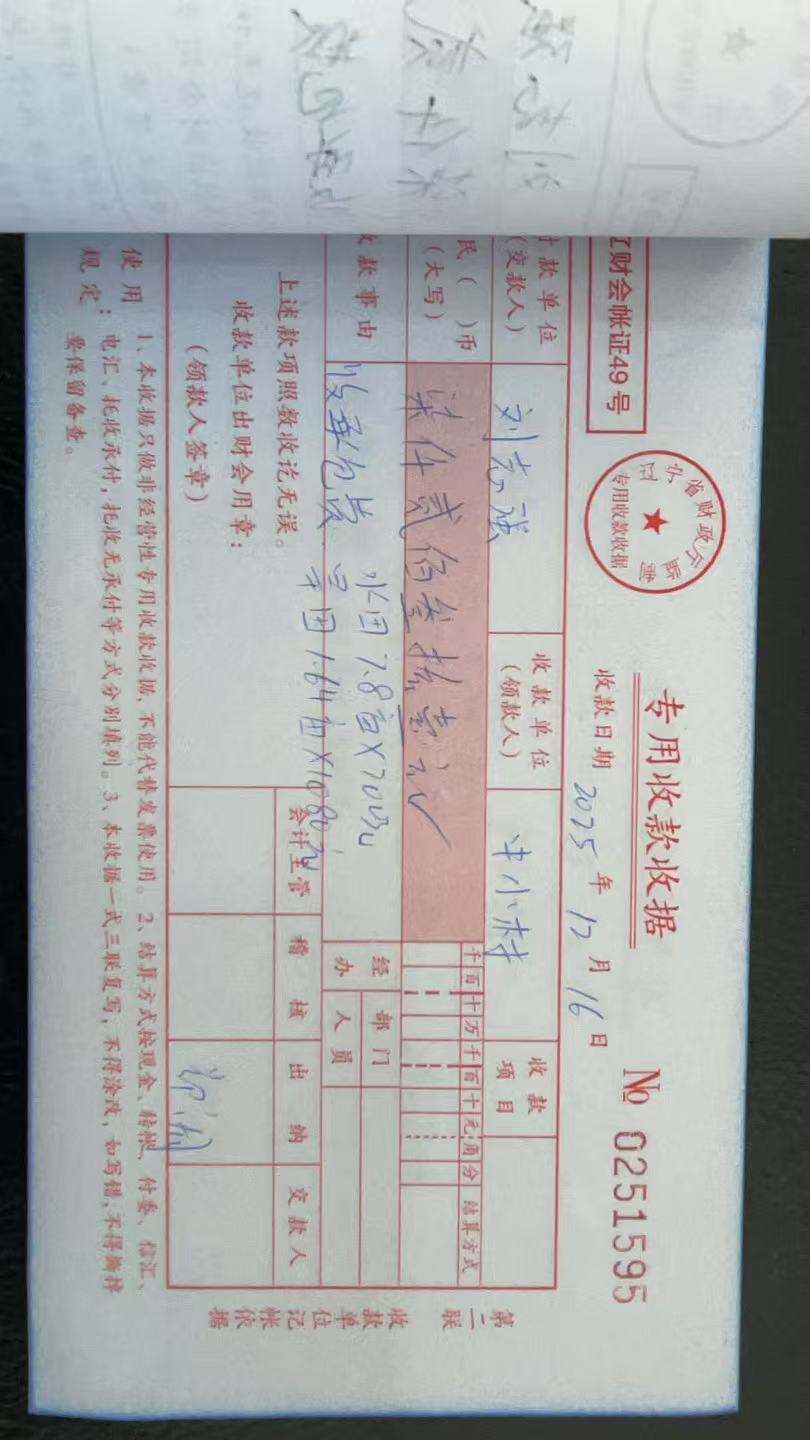 专用收款收据
财会帐证49号
省财政
专用收款收据
收款日期 2025年12月16日
№ 0251595
款单位
(交款人)
刘志强
收款单位
(领款人)
中小村
收款
项目
民( )币
(大写)
柒仟贰佰叁拾壹元
千百十万千百十元角分
结算方式
款事由
收承包费 水田7.8亩×700元
旱田1.64亩×1080元
经办
部门
人员
上述款项照数收讫无误。
收款单位出财会用章:
(领款人签章)
会计主管
稽核
出纳
交款人
使用规定:
1、本收据只做非经营性专用收款收据,不能代替发票使用。2、结算方式按现金、转帐、付委、信汇、
电汇、托收承付,托收无承付等方式分别填列。3、本收据一式三联复写,不得涂改,如写错,不得撕掉
要保留备查。
第二联
收款单位记帐依据